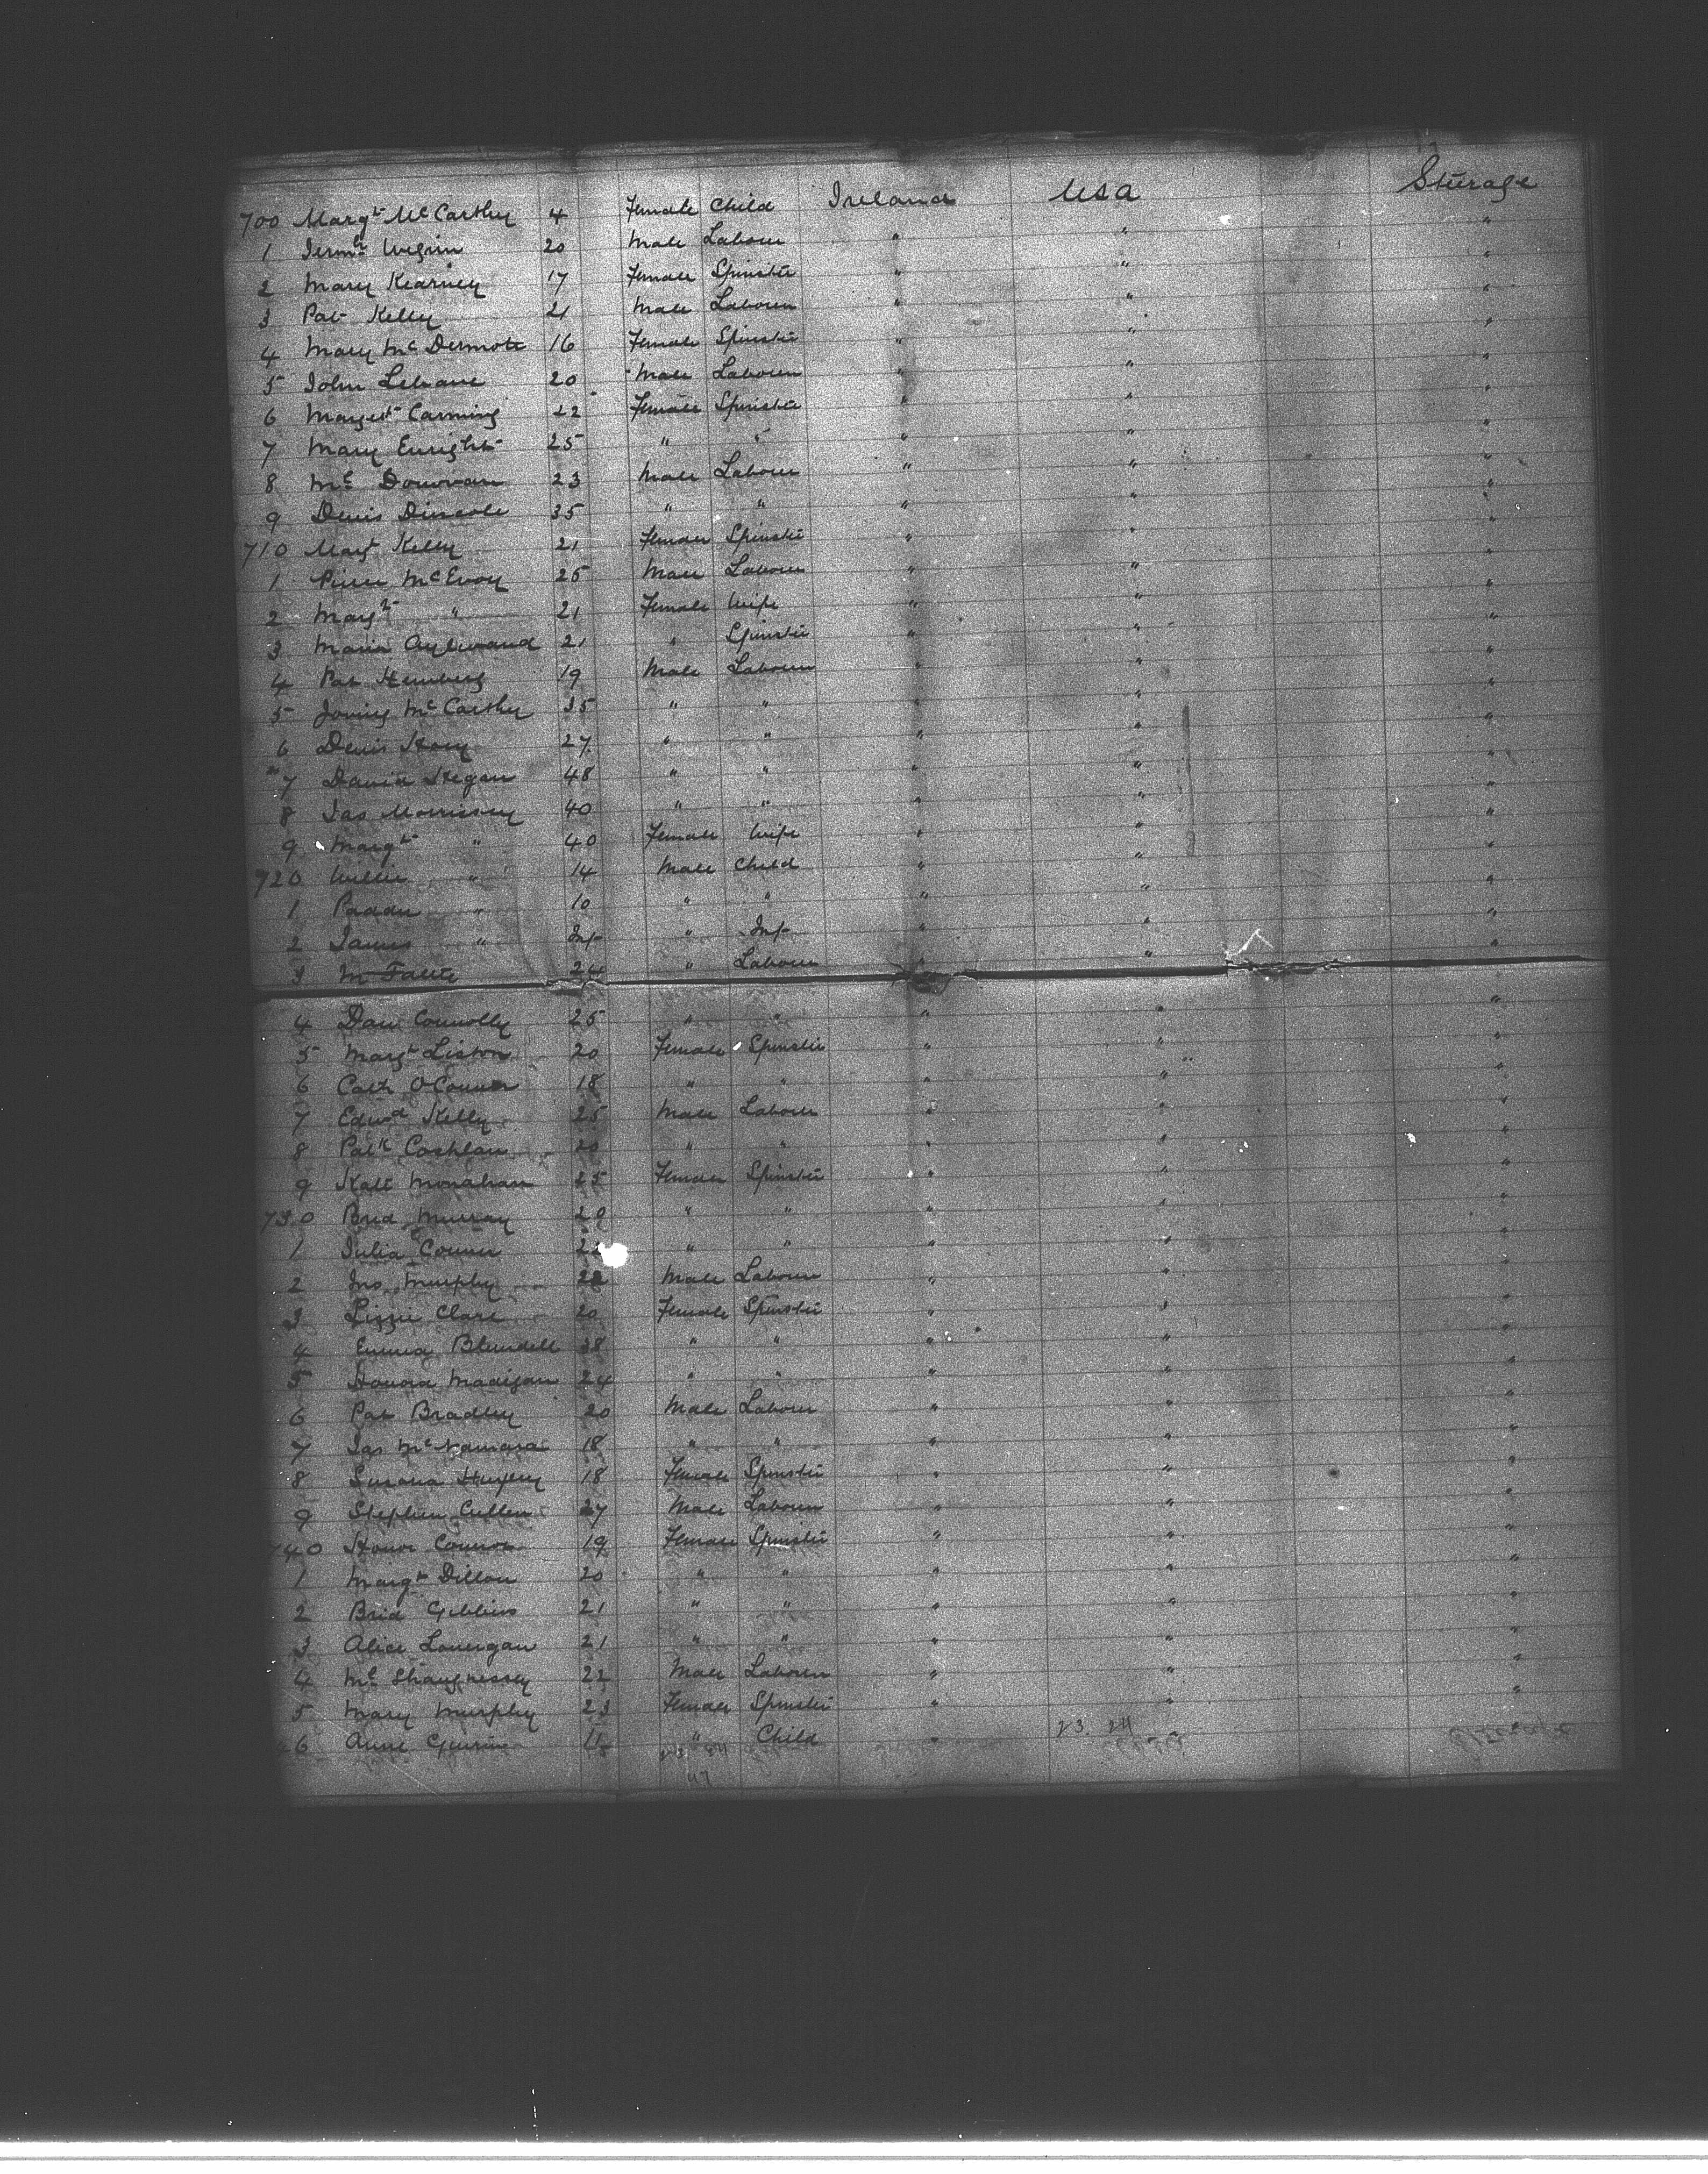 700 Margt McCarthy 4 Female Child Ireland USA Steerage
1 20 Male Labourer " " "
2 Mary Kearney 17 Female Spinster " " "
3 Pat Kelly 21 Male Labourer " " "
4 Mary McDermott 16 Female Spinster " " "
5 John Lehane 20 Male Labourer " " "
6 22 Female Spinster " " "
7 Mary Enright 25 " " " " "
8 Ml Donovan 23 Male Labourer " " "
9 Denis Driscole 35 " " " " "
710 Margt Kelly 21 Female Spinster " " "
1 McEvoy 25 Male Labourer " " "
2 Margt " 21 Female Wife " " "
3 Maria Aylward 21 " Spinster " " "
4 Pat 19 Male Labourer " " "
5 McCarthy 35 " " " " "
6 Denis 27 " " " " "
7 David Hegan 48 " " " " "
8 Jas Morrissey 40 " " " " "
9 Margt " 40 Female Wife " " "
720 Willie " 14 Male Child " " "
1 " 10 " " " " "
2 James " Inf " Inf " " "
3 24 " Labourer "
4 Dan Connolly 25 " " " " "
5 Margt Liston 20 Female Spinster " " "
6 Cath O'Connor 18 " " " " "
7 Edwd Kelly 25 Male Labourer " " "
8 Patk Coghlan 20 " " " " "
9 Kate Monahan 25 Female Spinster " " "
730 Brid Murray 20 " " " " "
1 Julia Connor " " " " "
2 Jno Murphy 22 Male Labourer " " "
3 Lizzie Clare 20 Female Spinster " " "
4 Emma Blundell 38 " " " " "
5 Honora Madigan 24 " " " " "
6 Pat Bradley 20 Male Labourer " " "
7 Jas McNamara 18 " " " " "
8 18 Female Spinster " " "
9 Stephen Cullen 27 Male Labourer " " "
740 Honor Connor 19 Female Spinster " " "
1 Margt Dillon 20 " " " " "
2 Brid Gibbins 21 " " " " "
3 Alice Lonergan 21 " " " " "
4 Ml Shaughnessy 22 Male Labourer " " "
5 Mary Murphy 23 Female Spinster " " "
6 Anne 11 " Child " "
23. 24
47